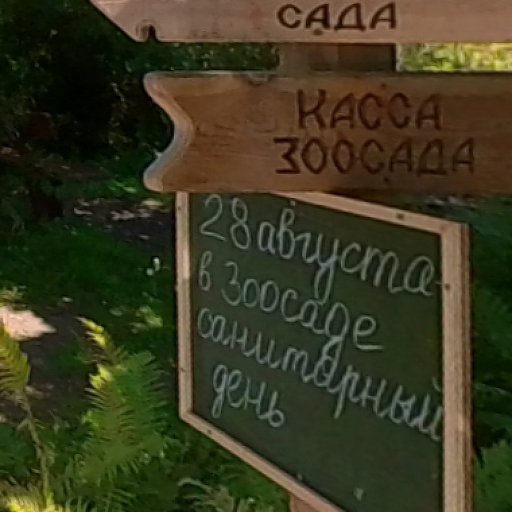 САДА
КАССА
ЗООСАДА
28 августа
в Зоосаде
санитарный
день